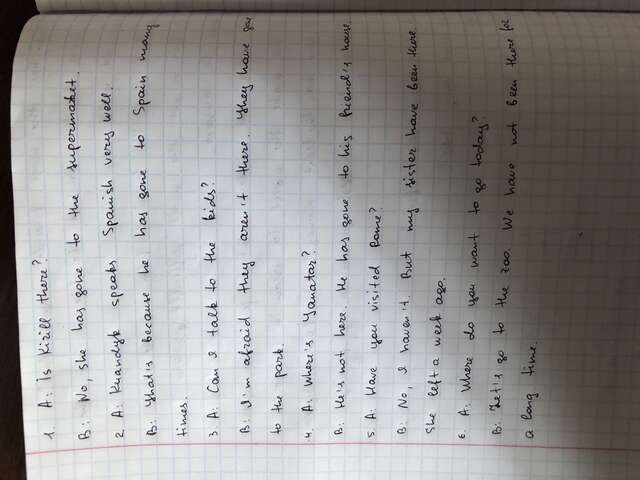 1. A: Is Kirill there?
B: No, she has gone to the supermarket.
2. A: Kuandyk speaks Spanish very well.
B: That's because he has gone to Spain many
times.
3. A: Can I talk to the kids?
B: I'm afraid they aren't there. They have gone
to the park.
4. A: Where's Yanatar?
B: He's not here. He has gone to his friend's house.
5. A: Have you visited Rome?
B: No, I haven't. But my sister have been there.
She left a week ago.
6. A: Where do you want to go today?
B: Let's go to the zoo. We have not been there for
a long time.